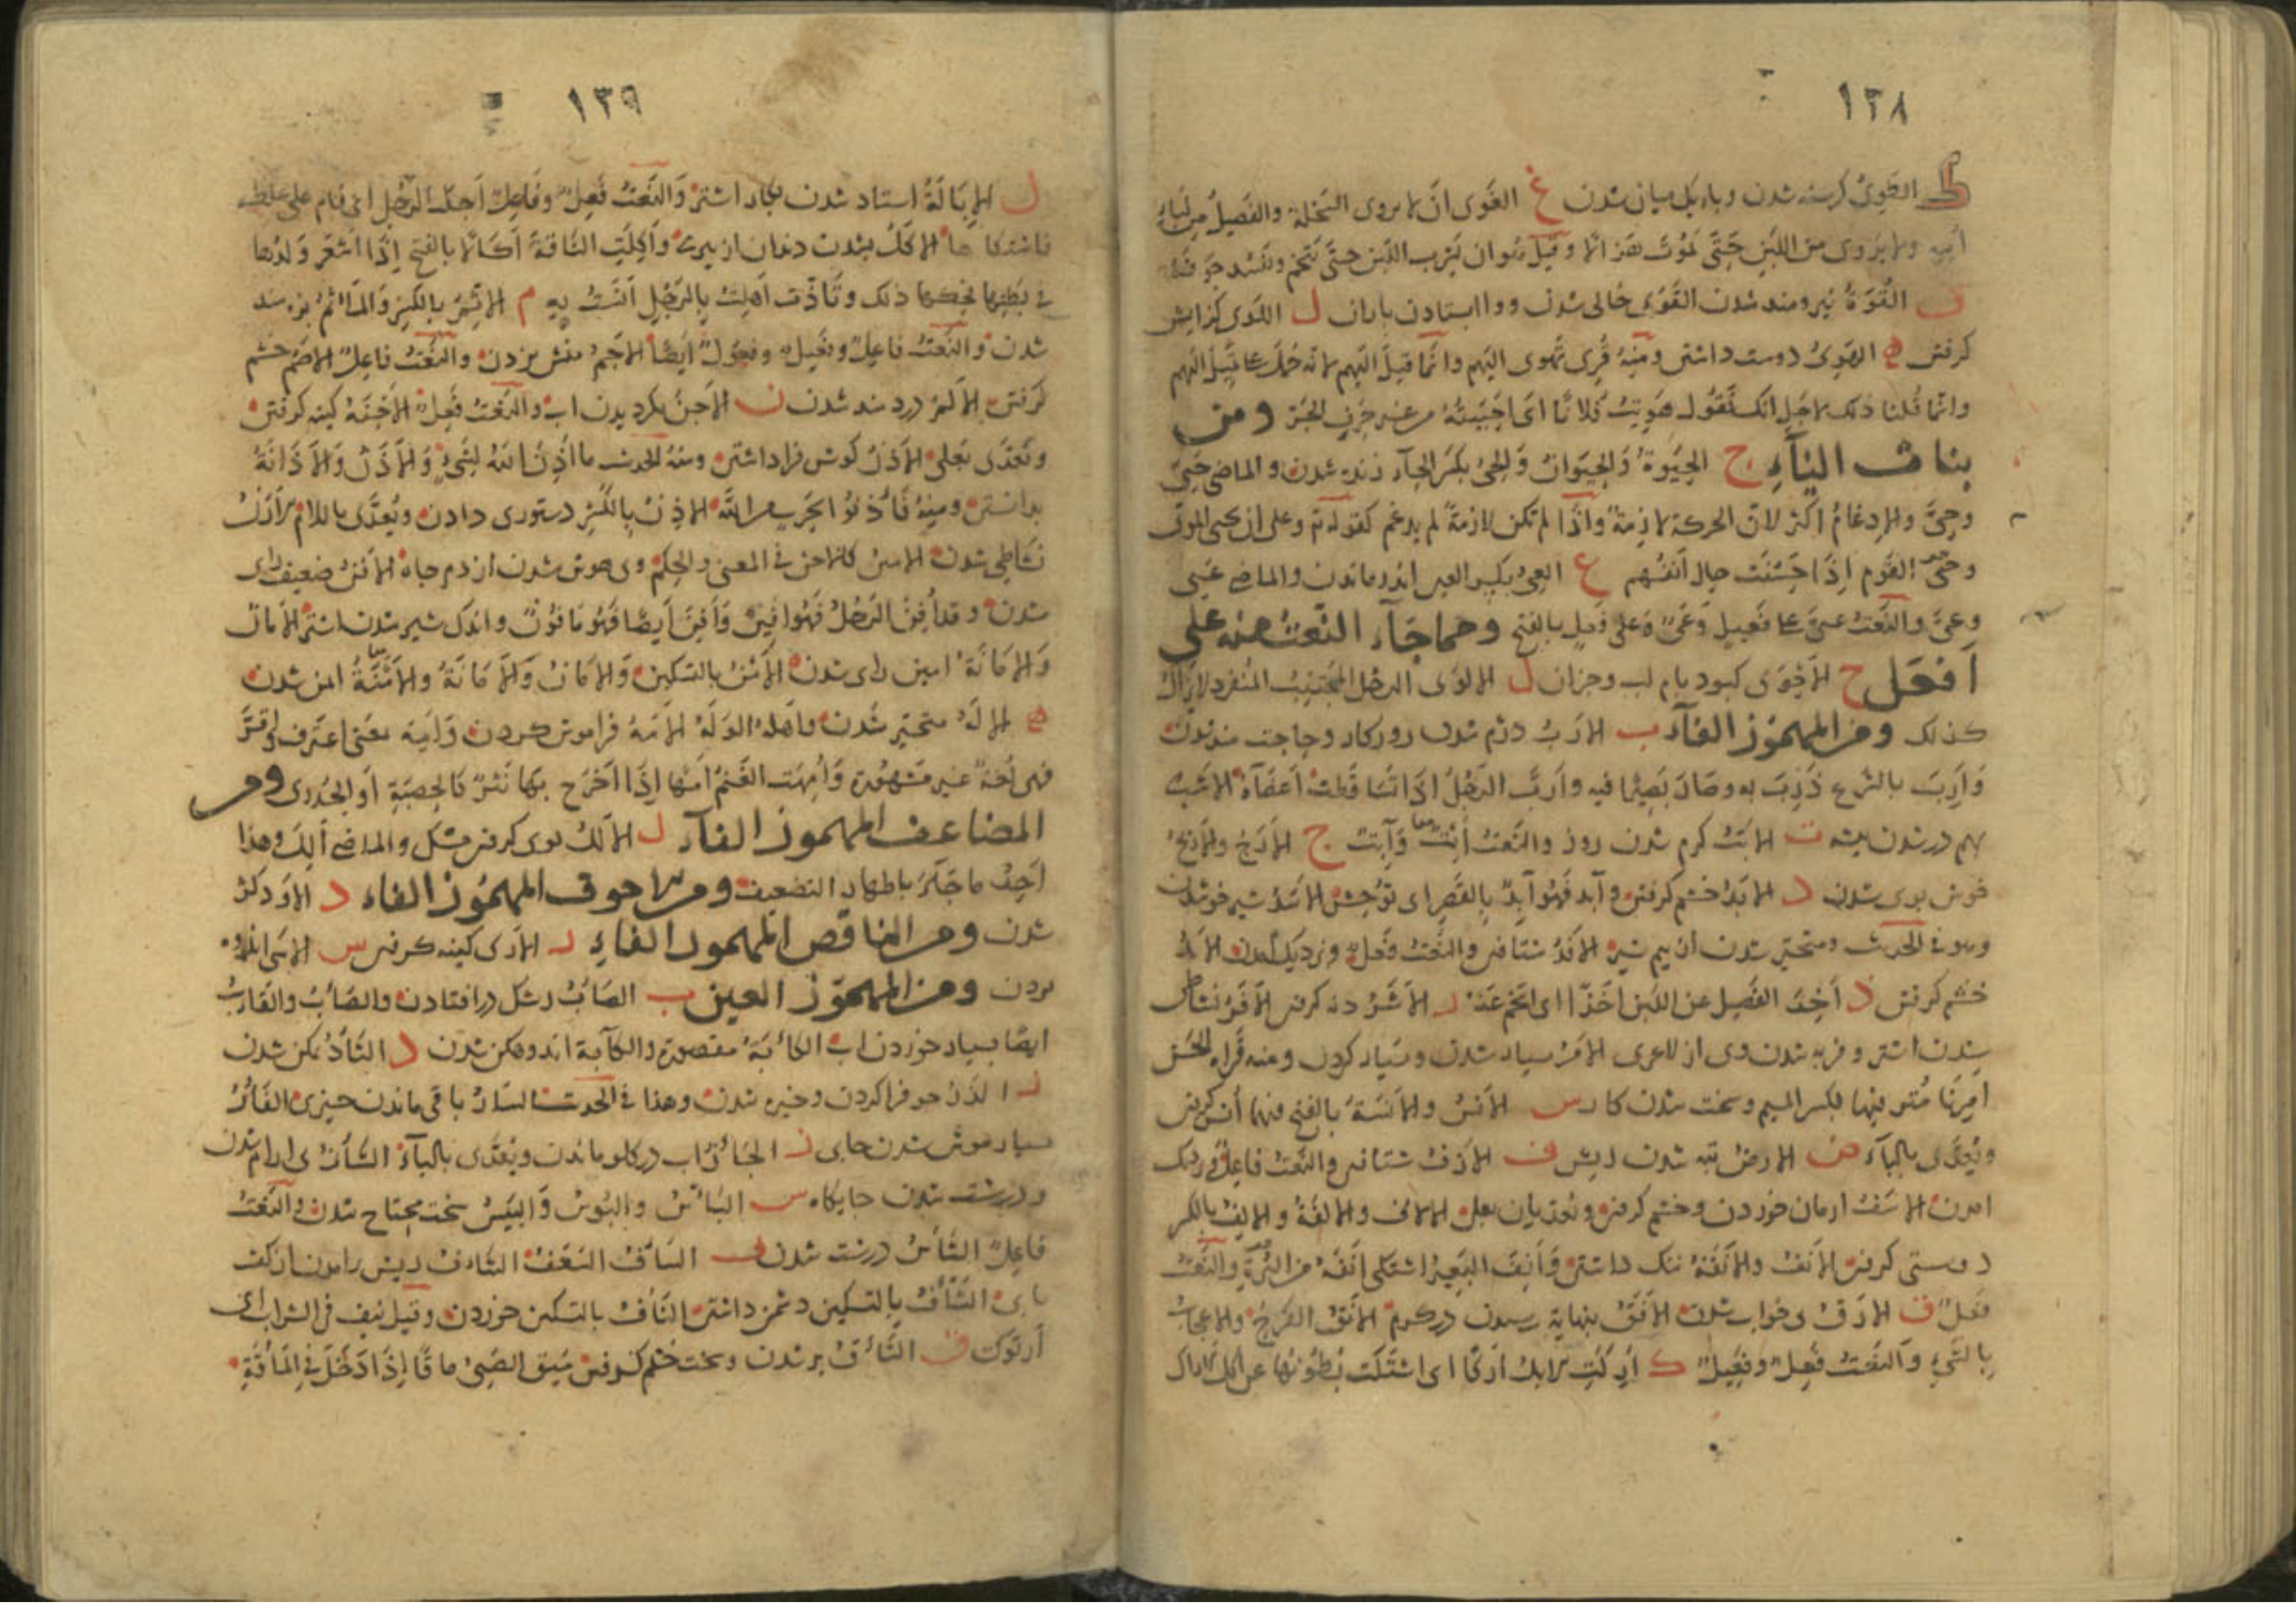 ١٣٨
ط الطوى کرسنه شدن وباریک میان شدن غ الغوى ان لا یروى السخلة والفصیل من لباء
امه ولا یروى من اللبن حتى تموت هزالا وقیل هو ان یشرب اللبن حتى یتخم وتفسد جوفه
ق القوة نیرومند شدن القوى خالى شدن ووا ایستادن باران ل اللوى کژ ایش
کرفتن ه الهوى دوست داشتن ومنه قرى تهوى الیهم وانما قیل الیهم لانه حمل على تمیل الیهم
وانما قلنا ذلک لاجل انک تقول هویت فلانا اى احببته من غیر حرف الجر ومن
بنات الیآء ح الحیوة والحیوان والحى بکسر الحآء زنده شدن والماضى حیى
وحى والادغام اکثر لان الحرکة لازمة واذا لم تکن لازمة لم یدغم کقوله تع وعلى ان یحیى الموتى
وحى القوم اذا حسنت حال انفسهم ع العى بکسر العین اندر ماندن والماضى عیى
وعى والنعت عى على فعیل وعى على فعل بالفتح ومما جآء النعت منه على
افعل ح الاحوى کبود بام لب وحزان ل الالوى الرجل المجتنب المنفرد لا یزال
کذلک ومن المهموز الفآء ب الارب دژم شدن روزکار وحاجت مند شدن
وارب بالشئ ذرب به وصار بصیرا فیه وارب الرجل اذا تساقطت اعضآؤه الاشب
بهم در شدن بیشه ت الابت کرم شدن روز والنعت ابت وآبت ج الارج والاریج
خوش بوى شدن د الابد خشم کرفتن وابد فهو ابد بالقصر اى توحش الاسد شیر خو شدن
وهو فى الحدیث ومتحیر شدن از بیم شیر الافد شتافتن والنعت فعل ونزدیک آمدن
خشم کرفتن ذ اخذ الفصیل عن اللبن اخذا اى اتخم عنه ر الاشر دنه کرفتن الافر نشاط
شدن اشتر وفربه شدن وى از لاغرى الامر بسیار شدن وبسیار کردن ومنه قراءة الحسن
امرنا مترفیها بکسر المیم وسخت شدن کار س الانس والانسة بالفتح فیهما انس کرفتن
ویعدى بالبآء ض الارض تبه شدن ریش ف الازف شتافتن والنعت فاعل ونزدیک
امدن الاسف ارمان خوردن وخشم کرفتن وتعدیان بعلى الالاف والالفة والالف بالکسر
دوستى کرفتن الانف والانفة ننک داشتن وانف البعیر اشتکى انفه من البرة والنعت
فعل ق الارق بى خواب شدن الافق بنهایة رسیدن در کرم الانق الفرح والاعجاب
بالشئ والنعت فعل وفعیل ک ارکت الابل ارکا اى اشتکت بطونها عن اکل الاراک
١٣٩
ل الابالة استاد شدن بکار اشتر والنعت فعل وفاعل اجل الرجل اى نام على غلظ
فاشتکاها الاکل بشدن دندان از پیرى واکلت الناقة اکالا بالفتح اذا اشعر ولدها
فى بطنها فحکها ذلک وتأذت اهلت بالرجل انست به م الاثم بالکسر والمأثم بزه مند
شدن والنعت فاعل وفعیل وفعول ایضا الاجم منش بزدن والنعت فاعل الاضم خشم
کرفتن الالم دردمند شدن ن الاجن بکردیدن اب والنعت فعل الاحنة کینه کرفتن
وتعدى بعلى الاذن کوش فرا داشتن ومنه الحدیث ما اذن الله لشئ والاذن والاذانة
بدانستن ومنه فأذنوا بحرب من الله الاذن بالکسر دستورى دادن ویعدى باللام الارن
نشاطى شدن الاسن کالاجن فى المعنى والحکم وبى هوش شدن از دم چاه الافن ضعیف راى
شدن وقد افن الرجل فهو افین وافن ایضا فهو مأفون واندک شیر شدن اشتر الامان
والامانة امین راى شدن الامن بالتسکین والامان والامانة والامنة ایمن شدن
ه الاله متحیر شدن واصله الوله الامه فراموش کردن وامه بمعنى اعترف واقر
فهى لغة غیر مشهورة وامهت الغنم امها اذا اخرج بها بثر کالحصبة او الجدرى ومن
المضاعف المهموز الفآء ل الالل بوى کرفتن مشک والماضى الل وهذا
احد ما جآء باظهار التضعیف ومن الاجوف المهموز الفاء د الاود کژ
شدن ومن الناقص المهموز الفاء ر الارى کینه کرفتن س الاسى اندوه
بردن ومن المهموز العین ب الصأب رشک در افتادن والصأب والقأب
ایضا بسیار خوردن اب الکأبة مقصورة والکآبة اندوهکن شدن د الثأد نمکن شدن
ر الذأر خو فرا کردن وخیره شدن وهذا فى الحدیث السأر باقى ماندن چیزى الفأر
بسیار موش شدن جاى ز الجأز اب در کلو ماندن ویعدى بالبآء الشأز بى ارام شدن
ودرشت شدن جایکاه س البأس والبؤس والبئیس سخت محتاج شدن والنعت
فاعل الشأس درشت شدن ف السأف السعف الشأف ریش
پاى الشأف بالتسکین دشمن داشتن النأف بالتسکین خوردن وقیل نئف فى الشراب اى
ارتوى ق التأق پر شدن وسخت خشم کرفتن مئق الصبى مأقا اذا دخل فى المأقة